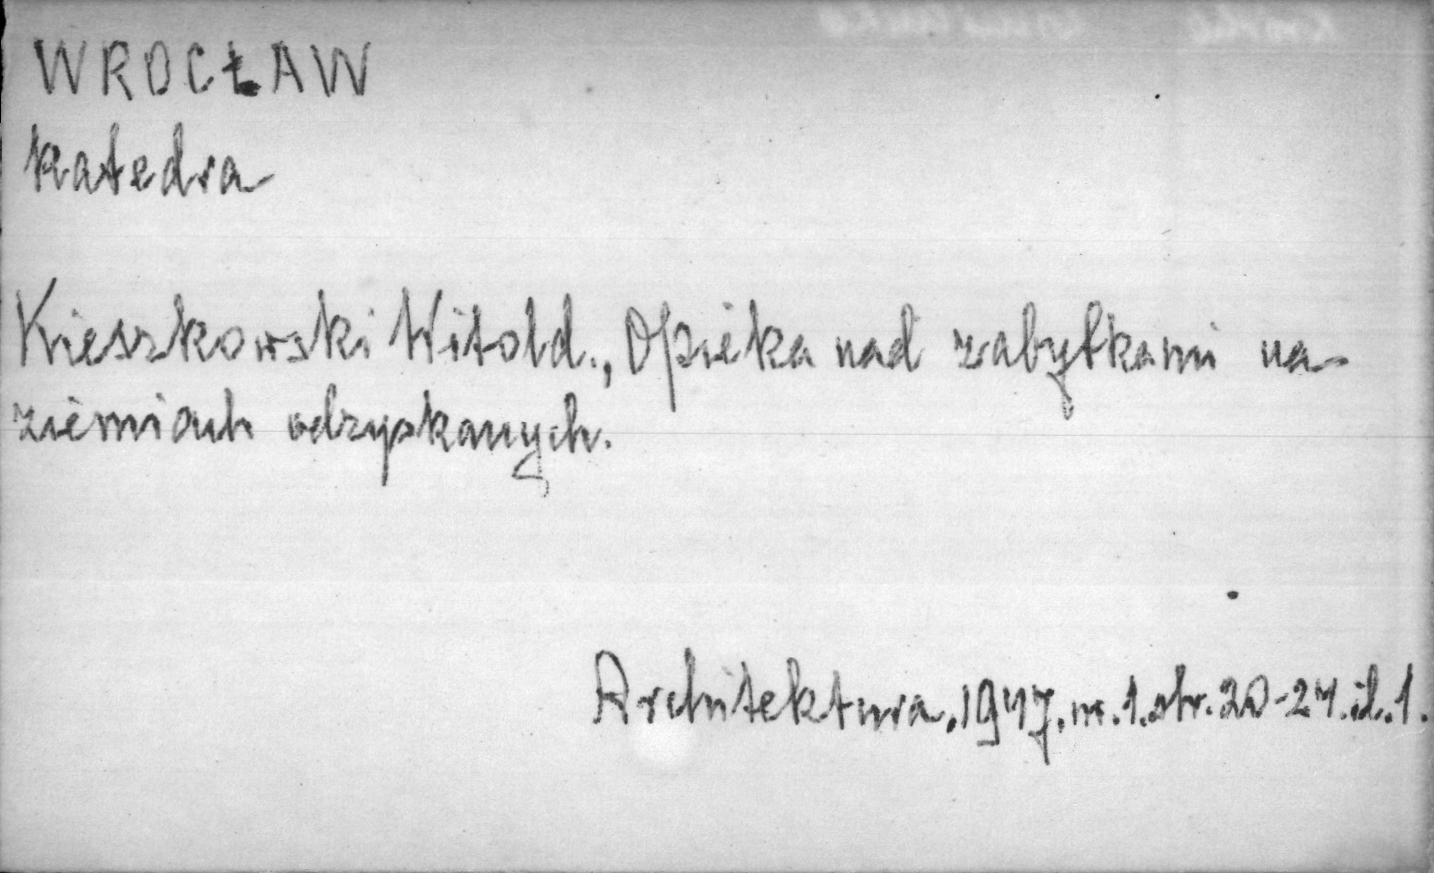 WROCŁAW
Katedra
Kieszkowski Witold., Opieka nad zabytkami na
ziemiach odzyskanych.
Architektura.1947.nr.1.str.20-24.il.1.